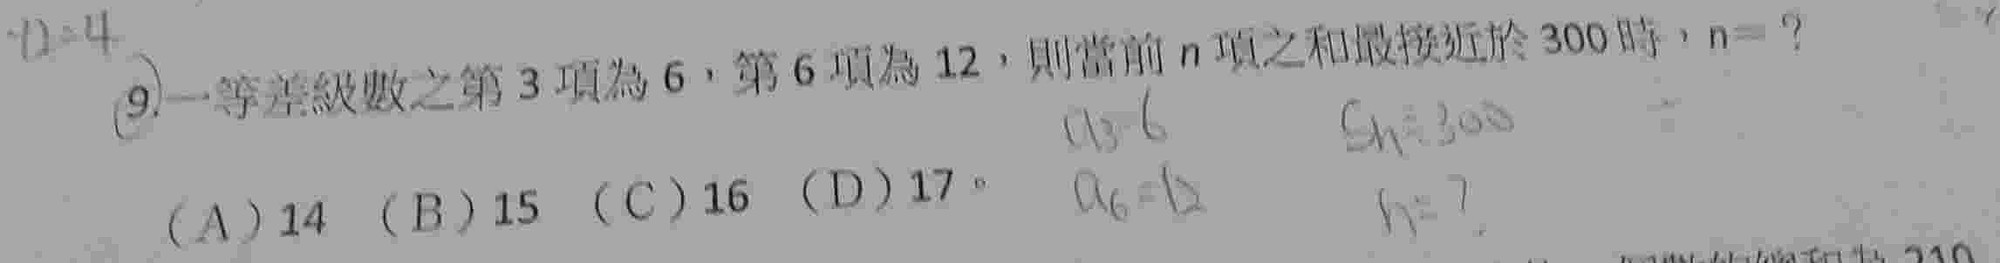 n=4
9. 一等差級數之第 3 項為 6，第 6 項為 12，則當前 n 項之和最接近於 300 時，n=？
a3=6 Sn≒300
（A）14 （B）15 （C）16 （D）17。
a6=12 n=?
210